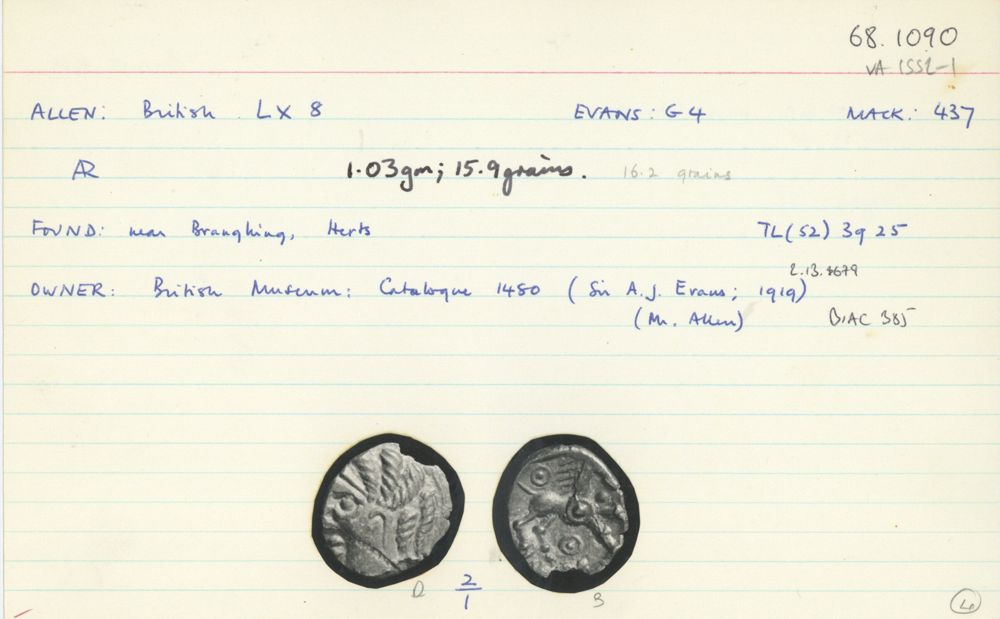 68.1090
VA 1552-1
ALLEN: British LX 8 EVANS: G4 MACK: 437
AR 1.03gm; 15.9grains. 16.2 grains
FOUND: near Braughing, Herts TL(52) 39 25
2.13.8679
OWNER: British Museum: Catalogue 1480 (Sir A.J. Evans; 1919)
(Mr. Allen) BIAC 385
D 2/1 B
4